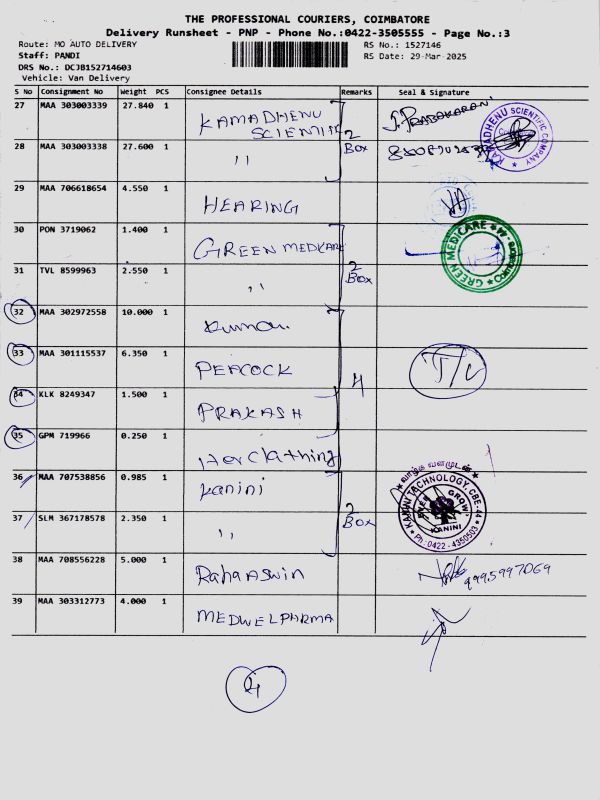 THE PROFESSIONAL COURIERS, COIMBATORE
Delivery Runsheet - PNP - Phone No.:0422-3505555 - Page No.:3
Route: MO AUTO DELIVERY
RS No.: 1527146
Staff: PANDI
RS Date: 29-Mar-2025
DRS No.: DCJB152714603
Vehicle: Van Delivery
S No Consignment No Weight PCS Consignee Details Remarks Seal & Signature
27 MAA 303003339 27.840 1 KAMADHENU SCIENTIFIC
2 Box
KAMADHENU SCIENTIFIC COMPANY
28 MAA 303003338 27.600 1 ,,
29 MAA 706618654 4.550 1 HEARING
30 PON 3719062 1.400 1 GREEN MEDKARE
2 Box
GREEN MEDICARE
31 TVL 8599963 2.550 1 ,,
32 MAA 302972558 10.000 1 Kumar
33 MAA 301115537 6.350 1 PEACOCK
4
34 KLK 8249347 1.500 1 PRAKASH
35 GPM 719966 0.250 1 clathing
36 MAA 707538856 0.985 1 Kanini
2 Box
வாழ்க வளமுடன்
KANINI TACHNOLOGY, CBE-44
EVER GROW
KANINI
Ph: 0422-4350503
37 SLM 367178578 2.350 1 ,,
38 MAA 708556228 5.000 1 Raha Aswin
9995997069
39 MAA 303312773 4.000 1 MEDWELPHARMA
4